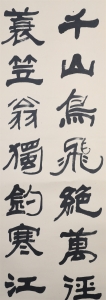 千山鳥飛絕萬徑
蓑笠翁獨釣寒江